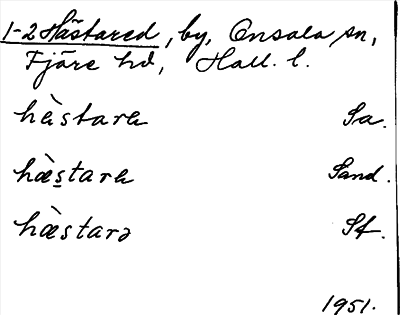 1-2 Hästared, by, Onsala sn,
Fjäre hd, Hall. l.
hæ̀stara Sa.
hæ̀s̲tara Sand.
hæ̀starə Sf.
1951.